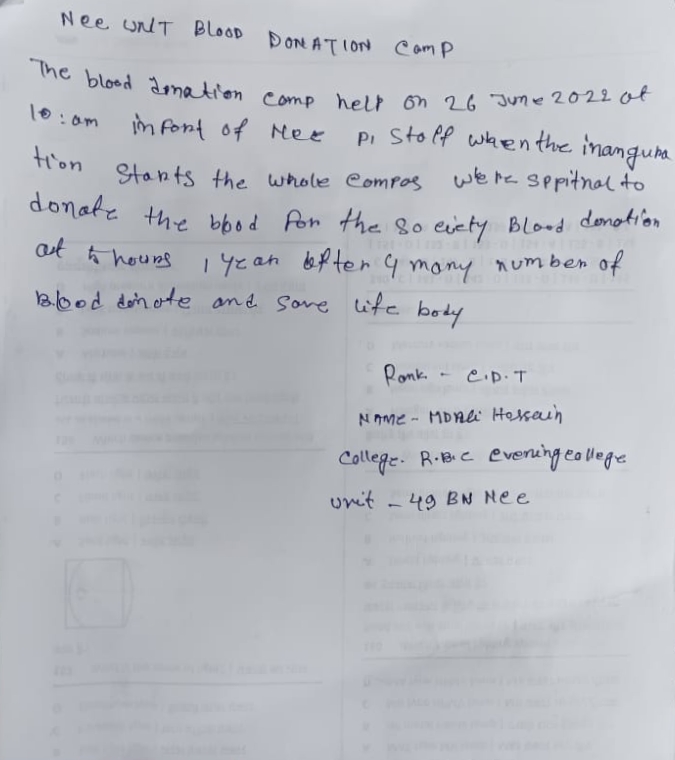 Nee UNIT BLOOD DONATION Camp
The blood donation camp help on 26 June 2022 at
10:am in font of Nee PI Staff when the inangura
tion Starts the whole compas were sppitnal to
donate the blood for the society Blood donation
at 5 hours 1 year after 4 many number of
Blood donote and save life body
Rank. - C.D.T
NAME - MD Ali Hossain
College. R.B.C evening college
unit - 49 BN Nee